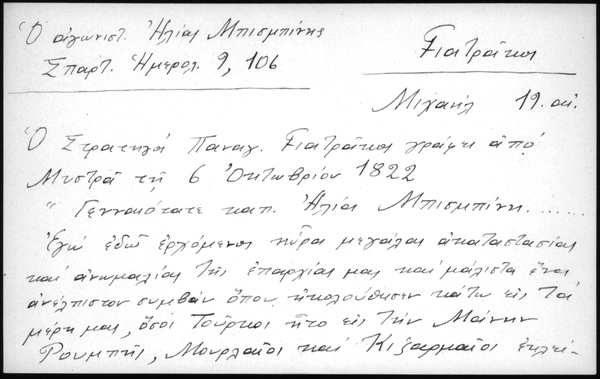 Ὁ ἀγωνιστ. Ἠλίας Μπισμπίνης
Σπαρτ. Ἡμερολ. 9, 106
Γιατράκος
Μιχαήλ 19. αἰ.
Ὁ Στρατηγός Παναγ. Γιατράκος γράφει ἀπό
Μυστρᾶ τῇ 6 Ὀκτωβρίου 1822
" Γενναιότατε καπ. Ἠλία Μπισμπίνη.......
Ἐγώ ἐδῶ ἐρχόμενος ηὗρα μεγάλας ἀκαταστασίας
καί ἀνωμαλίας τῆς ἐπαρχίας μας καί μάλιστα ἕνα
ἀνέλπιστον συμβάν ὅπου ἠκολούθησεν κάτω εἰς τά
μέρη μας, ὅσοι Τοῦρκοι ἦτο εἰς τήν Μάνην
Ρουμπῆς, Μουρλαῖοι καί